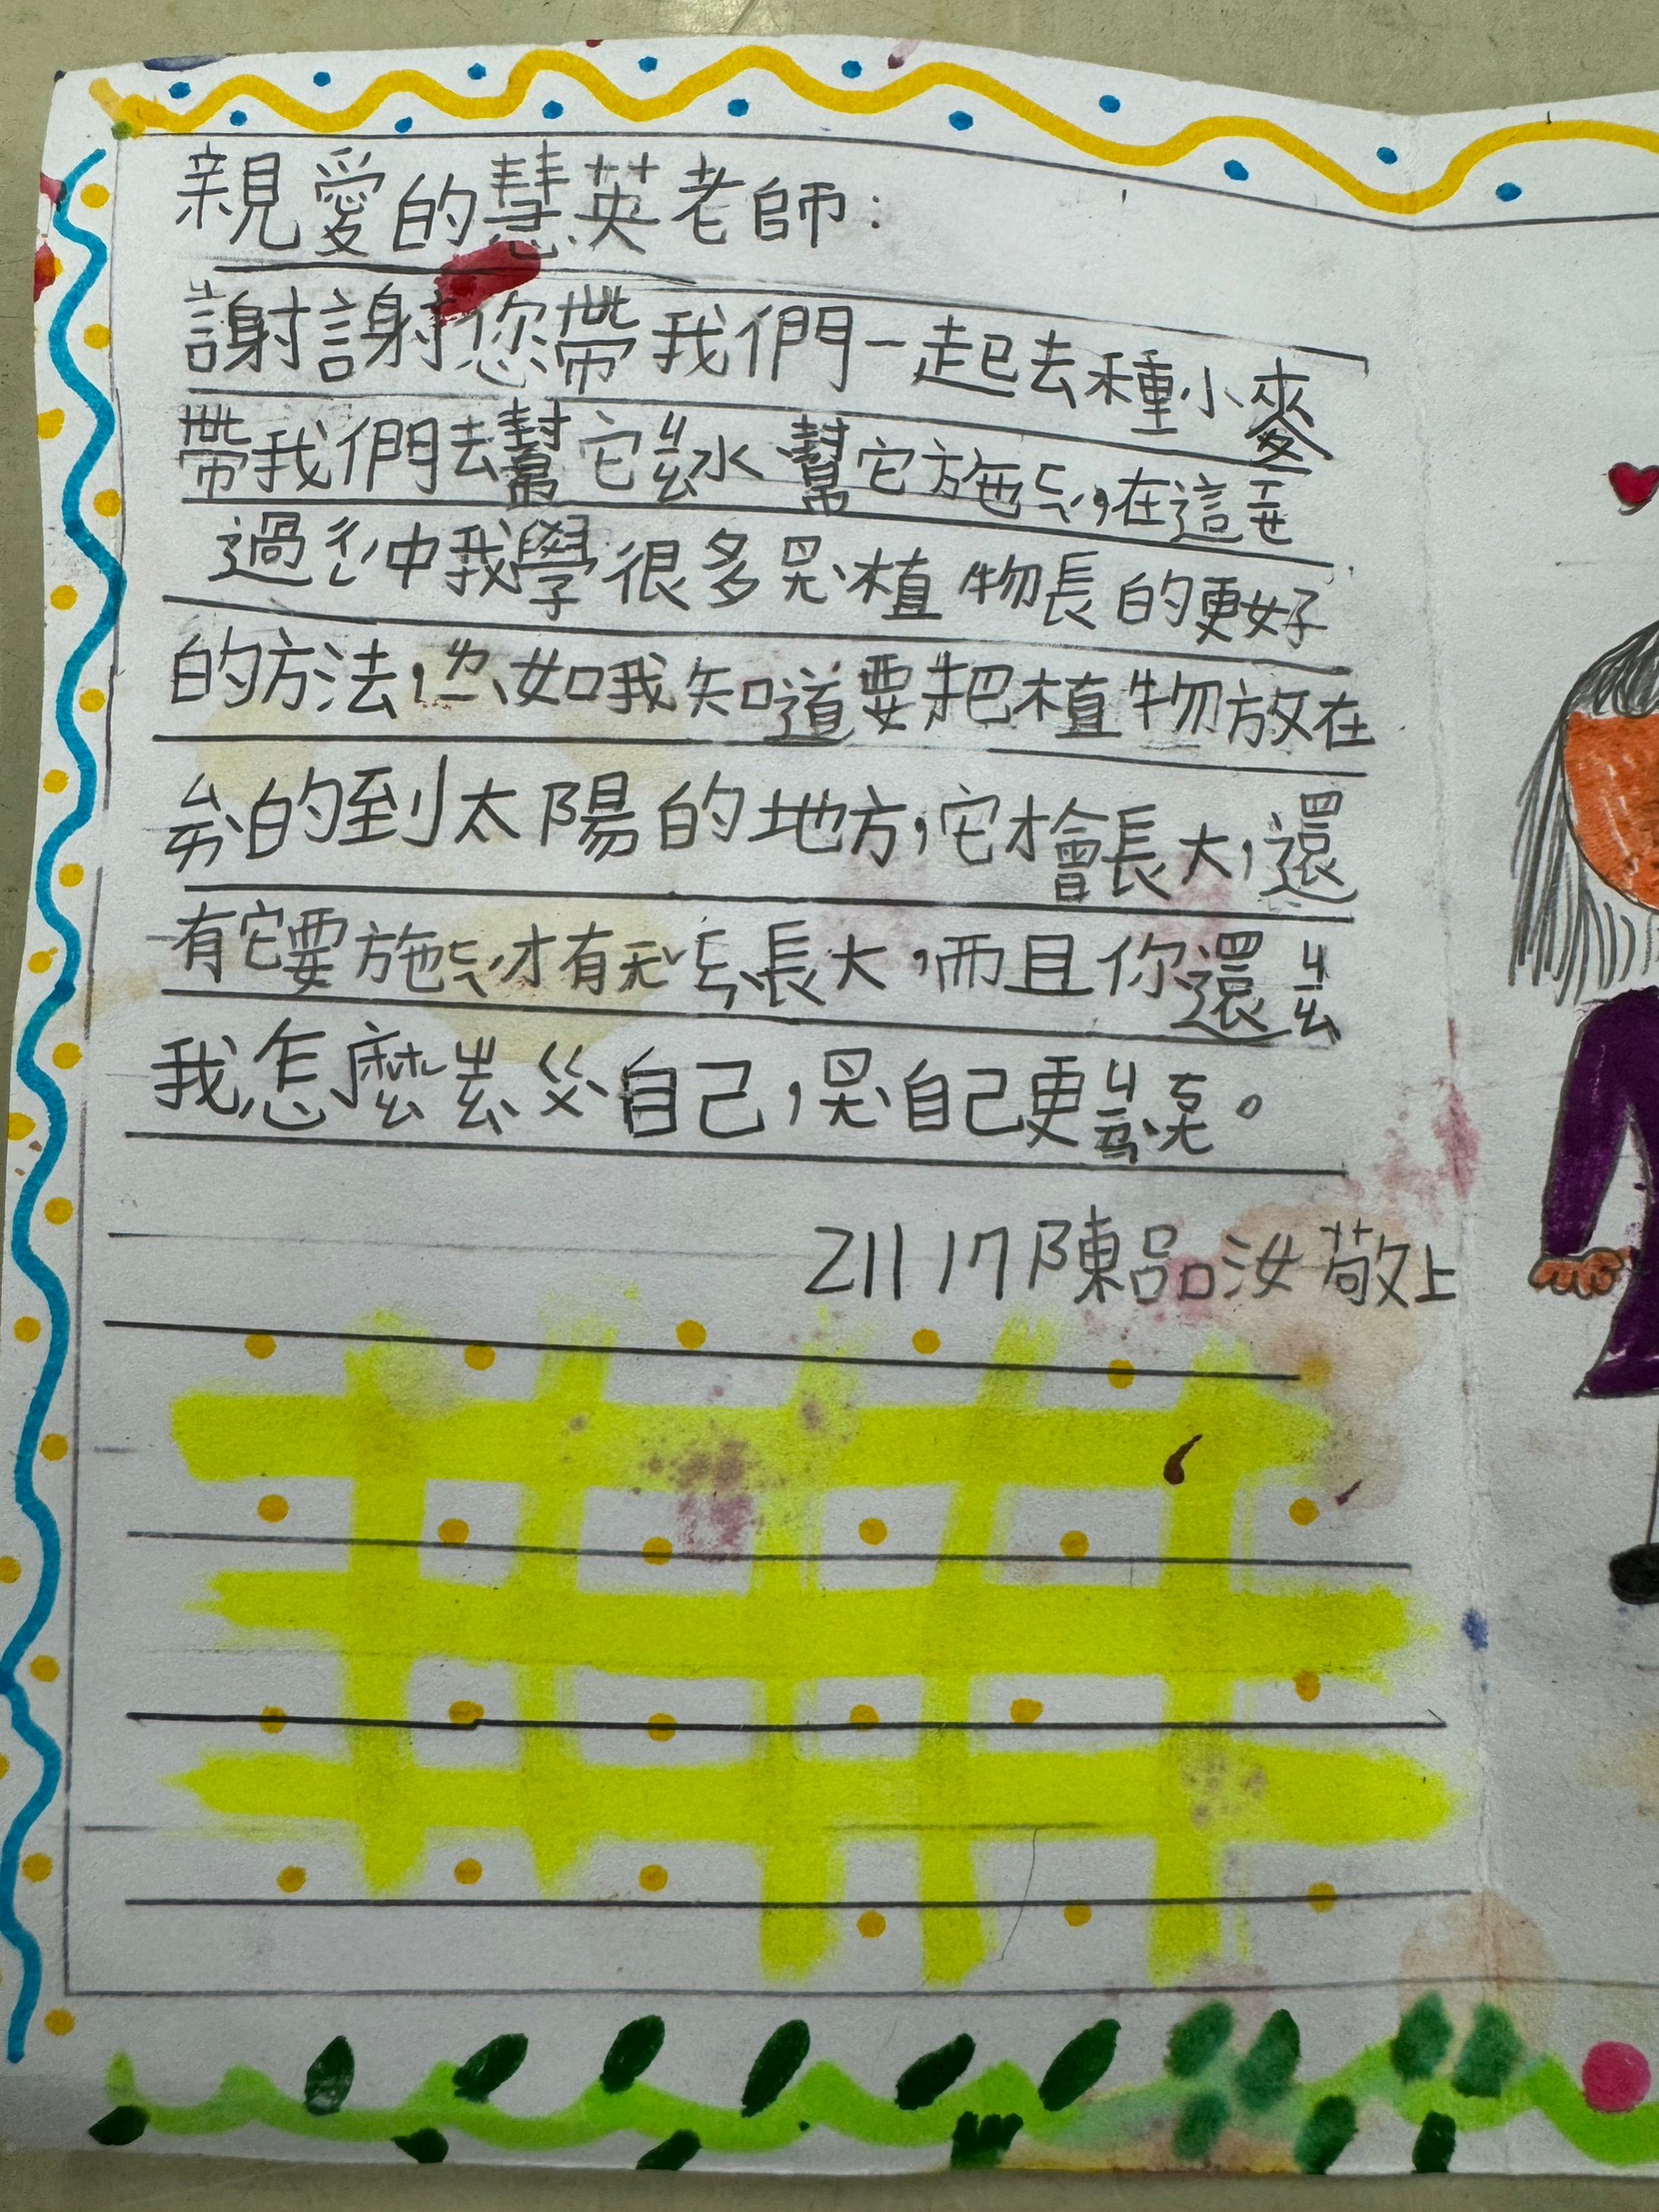 親愛的慧英老師：
謝謝您帶我們一起去種小麥
帶我們去幫它ㄐㄧㄠ水幫它施ㄈㄟˊ，在這
過ㄔㄥˊ中我學很多ㄖㄤˋ植物長的更好
的方法，ㄌㄧˋ如我知道要把植物放在
ㄙㄞˋ的到太陽的地方，它才會長大，還
有它要施ㄈㄟˊ才有ㄈㄤˇ長大，而且你還ㄐㄧㄠ
我怎麼ㄓㄠˋ ㄍㄨˋ自己，ㄖㄤˋ自己更ㄐㄧㄢˋㄎㄤ。
211 17 陳品汝敬上